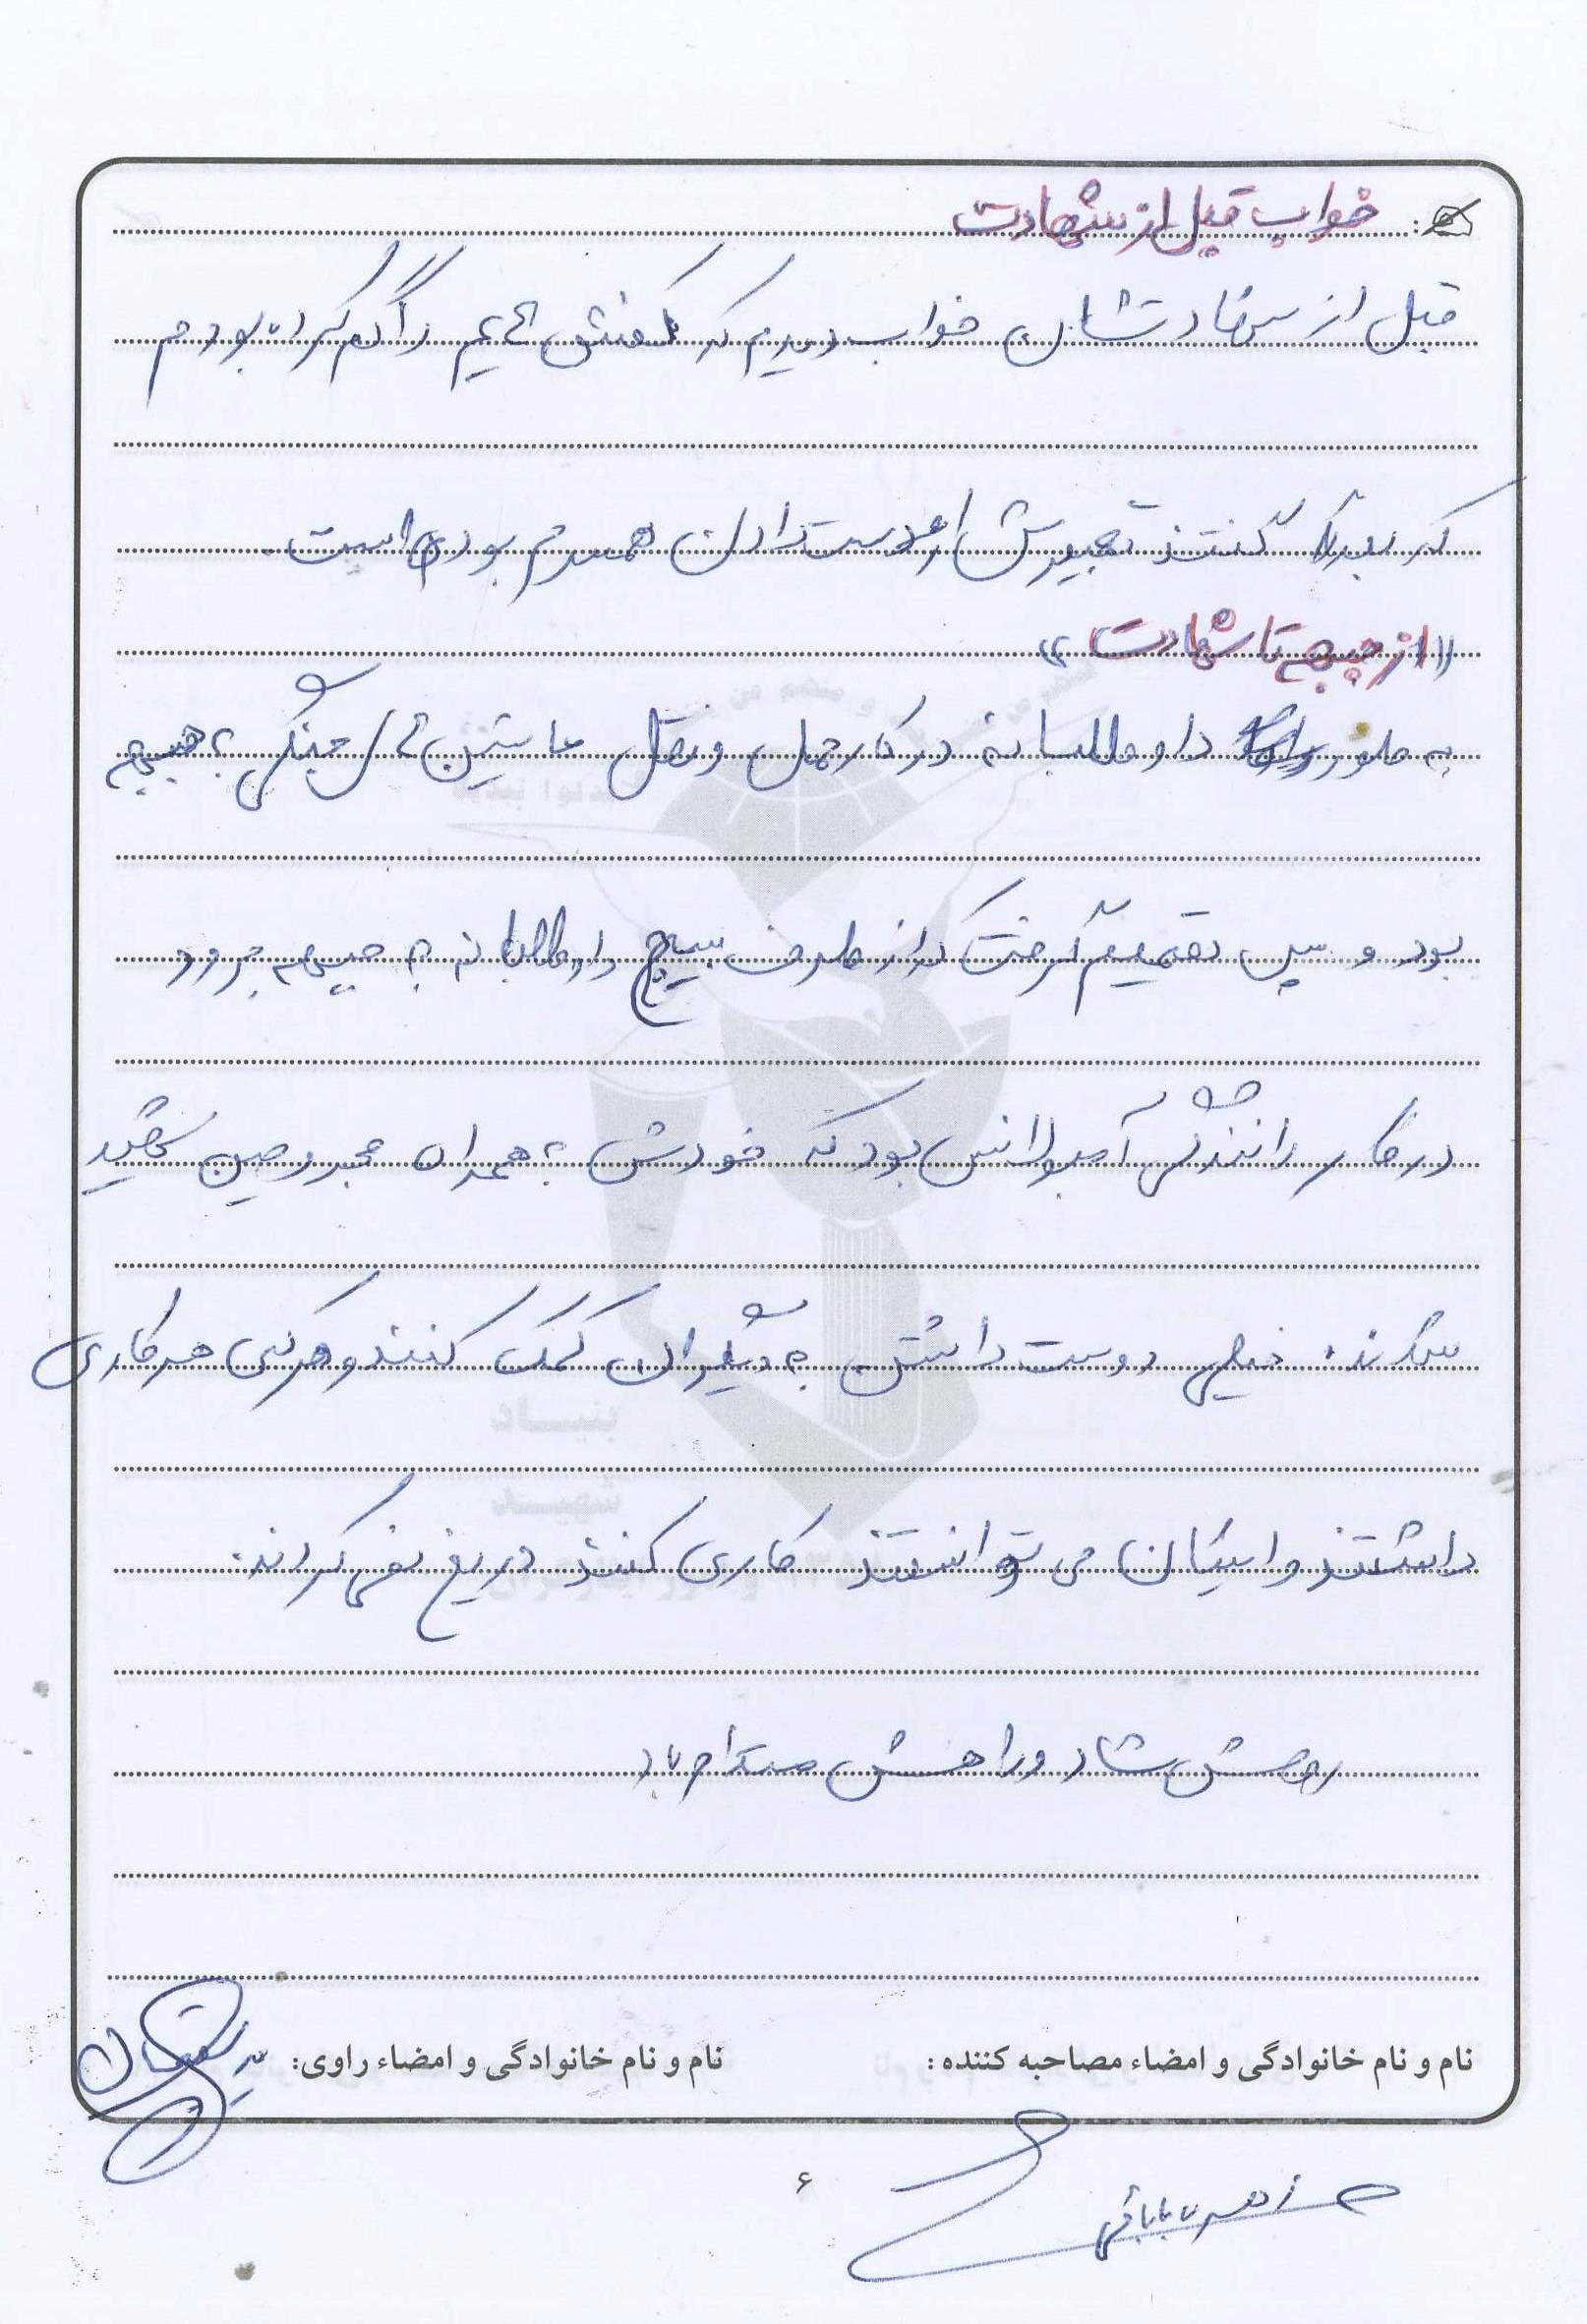 خواب قبل از شهادت
قبل از شهادتشان خواب دیدم که کفش هایم را گم کرده بودم
که بعداً گفتند تعبیرش از دست دادن همسرم بوده است.
«از جبهه تا شهادت»
به طور داوطلبانه در کار حمل و نقل ماشین های جنگی به جبهه
بود و سپس تصمیم گرفت که از طرف بسیج داوطلبانه به جبهه برود
در کار رانندگی آمبولانس بود که خودش به همراه مجروحین شهید
شدند. خیلی دوست داشتن به دیگران کمک کنند و هر کسی هر کاری
داشتند و ایشان می توانستند کاری کنند دریغ نمی کردند.
روحش شاد و راهش مستدام باد
نام و نام خانوادگی و امضاء مصاحبه کننده : نام و نام خانوادگی و امضاء راوی:
زهرا باباقی
۶
بنیاد
شهید